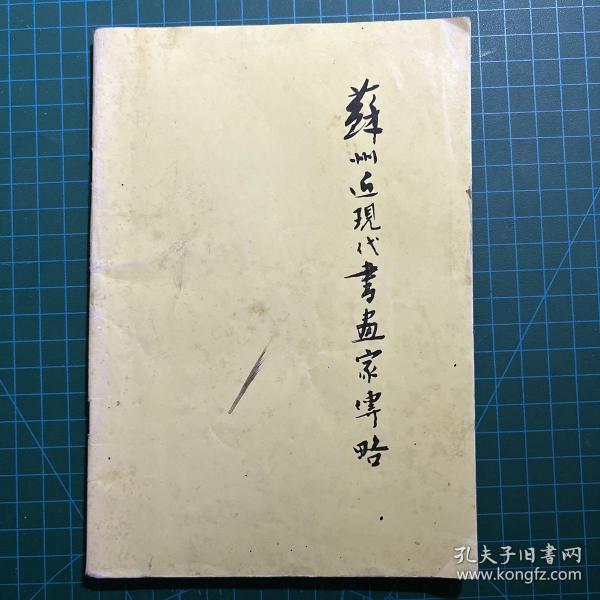 蘇州近現代書畫家傳略
孔夫子旧书网
www.kongfz.com